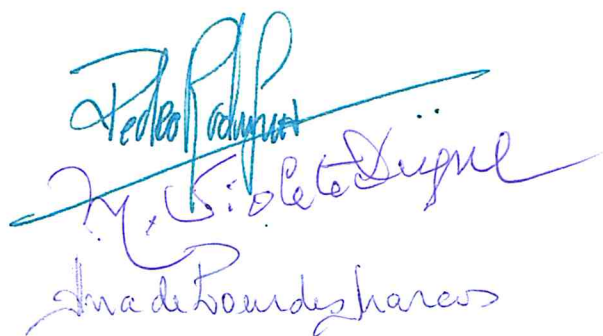 Pedro Rodrigues
M. Violeta Duque
Ana de Lourdes Marcos